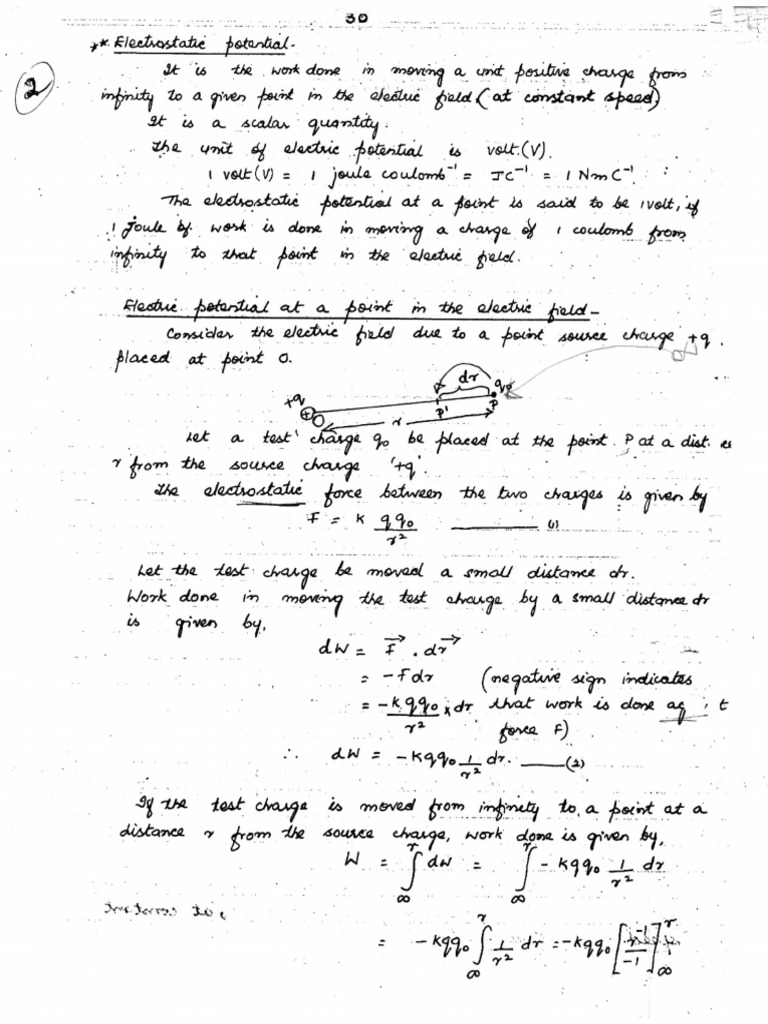 30
** Electrostatic potential.
2
It is the work done in moving a unit positive charge from
infinity to a given point in the electric field (at constant speed)
It is a scalar quantity.
The unit of electric potential is volt.(V).
1 volt(V) = 1 joule coulomb⁻¹ = JC⁻¹ = 1 NmC⁻¹
The electrostatic potential at a point is said to be 1volt, if
1 Joule of work is done in moving a charge of 1 coulomb from
infinity to that point in the electric field.
Electric potential at a point in the electric field -
Consider the electric field due to a point source charge +q.
placed at point O.
+q + O r dr P' P q₀
Let a test charge q₀ be placed at the point P at a dist.
r from the source charge '+q'.
The electrostatic force between the two charges is given by
F = K qq₀/r² ——— (1)
Let the test charge be moved a small distance dr.
Work done in moving the test charge by a small distance dr
is given by,
dW = F⃗ . dr⃗
= -Fdr (negative sign indicates
= -K qq₀/r² x dr that work is done
force F)
∴ dW = -Kqq₀ 1/r² dr. ——— (2)
If the test charge is moved from infinity to a point at a
distance r from the source charge, work done is given by,
W = ∫∞^r dW = ∫∞^r -Kqq₀ 1/r² dr
= -Kqq₀ ∫∞^r 1/r² dr = -Kqq₀ [r⁻¹/-1]∞^r